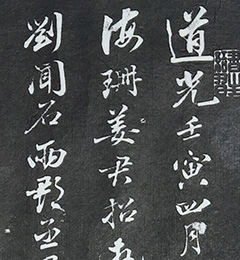 道光壬寅四月
海珊姜君招
劉聞石雨